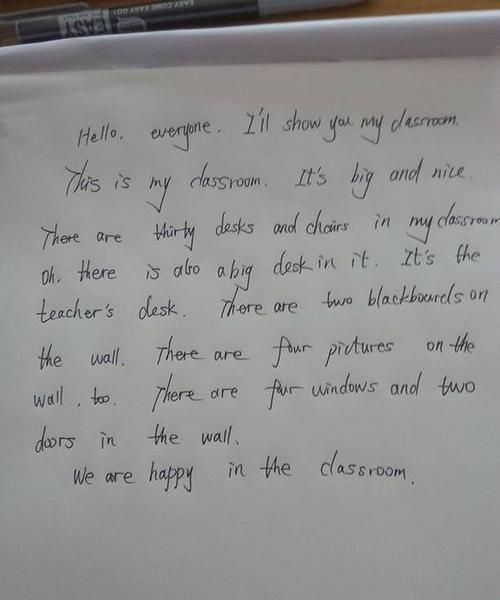 EASY COME EASY GO!
EASY
Hello. everyone. I'll show you my classroom.
This is my classroom. It's big and nice.
There are thirty desks and chairs in my classroom
Oh, there is also a big desk in it. It's the
teacher's desk. There are two blackboards on
the wall. There are four pictures on the
wall, too. There are four windows and two
doors in the wall.
We are happy in the classroom.